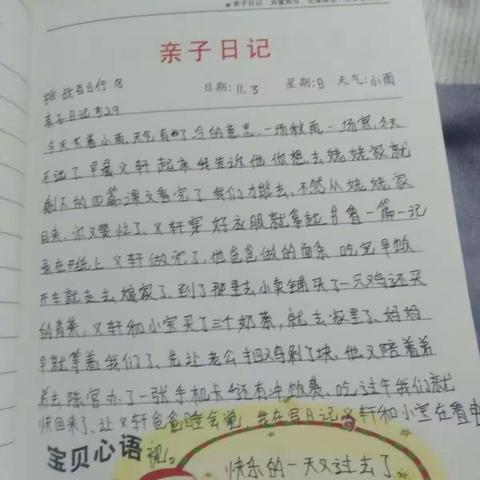 亲子日记
挑战百日行
亲子日记 第29
日期：11.3 星期：日 天气：小雨
今天下着小雨，天气有了冷的意思，一场秋雨一场寒，今天
不过了早晨义轩起床我告诉他你想去姥姥家就
剩下的四篇课文看完了我们才能去，不然从姥姥家
回来，你又要忙了，义轩穿好衣服就拿起书看一篇一记
录在纸上义轩做完了，他爸爸做的面条 吃完早饭
开车就去姥家了，到了那里去小卖铺买了一只鸡还买
的青菜，义轩和小宝买了三个奶茶，就去家里了，妈妈
早就等着我们了，先让老公把鸡剁了块，他又陪着弟
弟去陈官办了一张手机卡 还有冲饮费，吃过午我们就
快回来了，让义轩爸爸睡会觉，我在写日记义轩和小宝在看电
视。
宝贝心语
快乐的一天又过去了